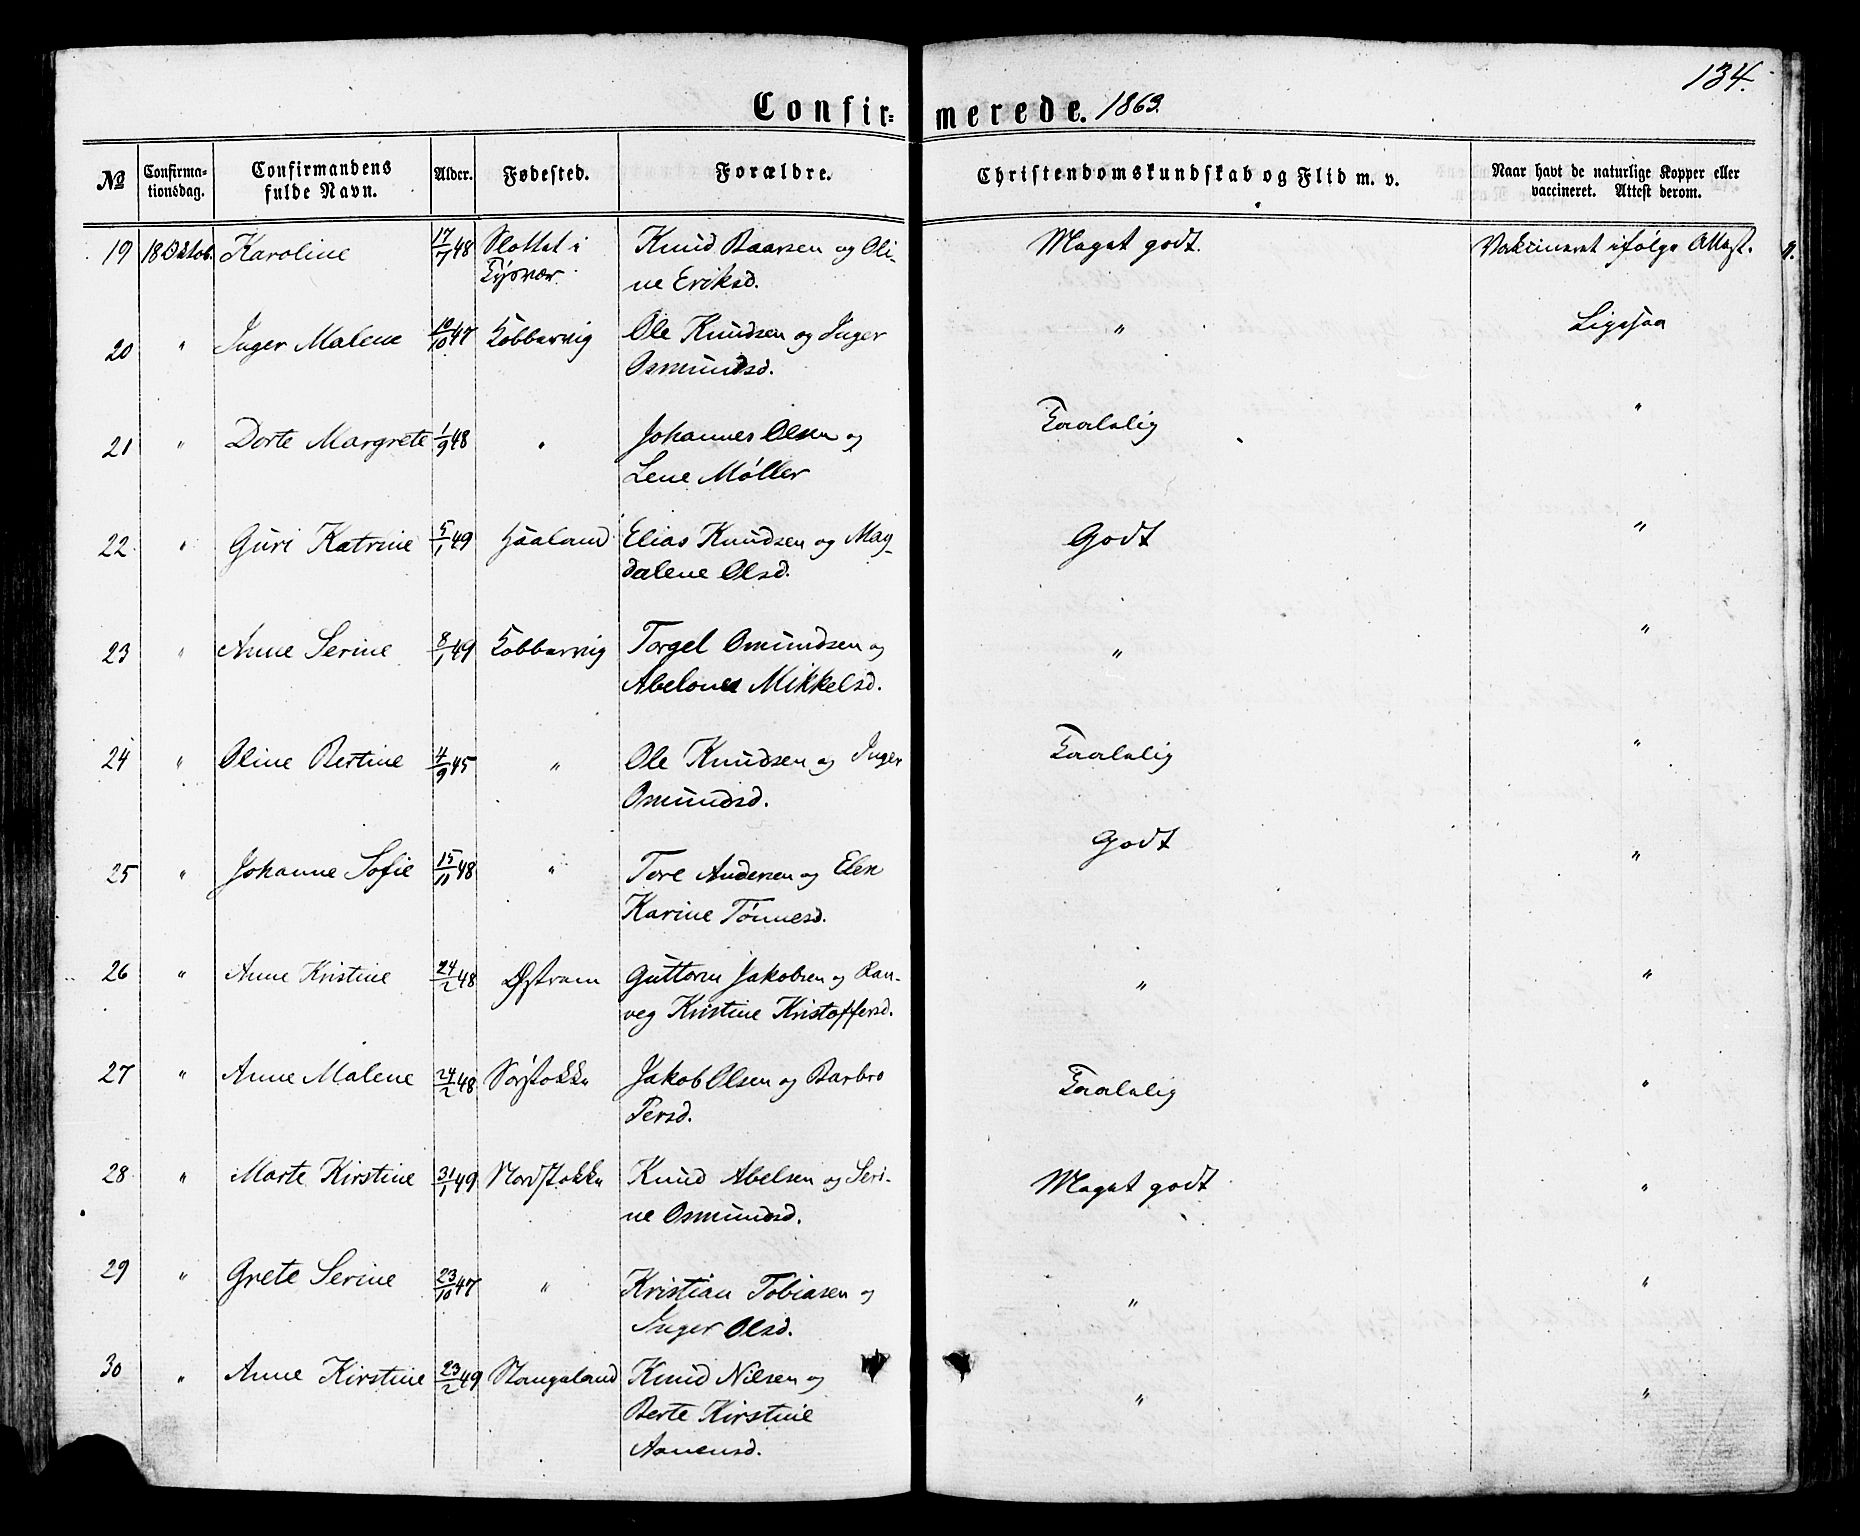 134.
Confir= merede. 1863.
No Confirma- Confirmandens Alder. Fødested. Forældre. Christendomskundskab og Flid m. v. Naar havt de naturlige Kopper eller
tionsdag. fulde Navn. vaccineret. Attest derom.
19 18 Oktob. Karoline 17/7 48 Slottet i Knud Baarsen og Oli- Meget godt. Vakcineret ifølge Attest.
Tysvær. ne Eriksd.
20 " Inger Malene 10/10 47 Kobbervig Ole Knudsen og Inger " Ligesaa
Osmundsd.
21 " Dorte Margrete 1/9 48 " Johannes Olsen og Taalelig "
Lene Møller
22 " Guri Katrine 5/1 49 Haaland Elias Knudsen og Mag- Godt "
dalene Olsd.
23 " Anne Serine 8/1 49 Kobbervig Torgel Omundsen og " "
Abelone Mikkelsd.
24 " Oline Bertine 4/9 45 " Ole Knudsen og Inger Taalelig "
Osmundsd.
25 " Johanne Sofie 15/11 48 " Tore Andersen og Elen Godt "
Karine Tønnesd.
26 " Anne Kristine 24/2 48 Østrem Guttorm Jakobsen og Ran- " "
veg Kristine Kristoffersd.
27 " Anne Malene 24/2 48 Sørstokke Jakob Olsen og Barbro Taalelig "
Persd.
28 " Marte Kirstine 31/1 49 Nordstokke Knud Abelsen og Seri- Meget godt "
ne Osmundsd.
29 " Grete Serine 23/10 47 " Kristian Tobiasen og " "
Inger Olsd.
30 " Anne Kirstine 23/2 49 Stangeland Knud Nilsen og " "
Berte Kirstine
Aanensd.